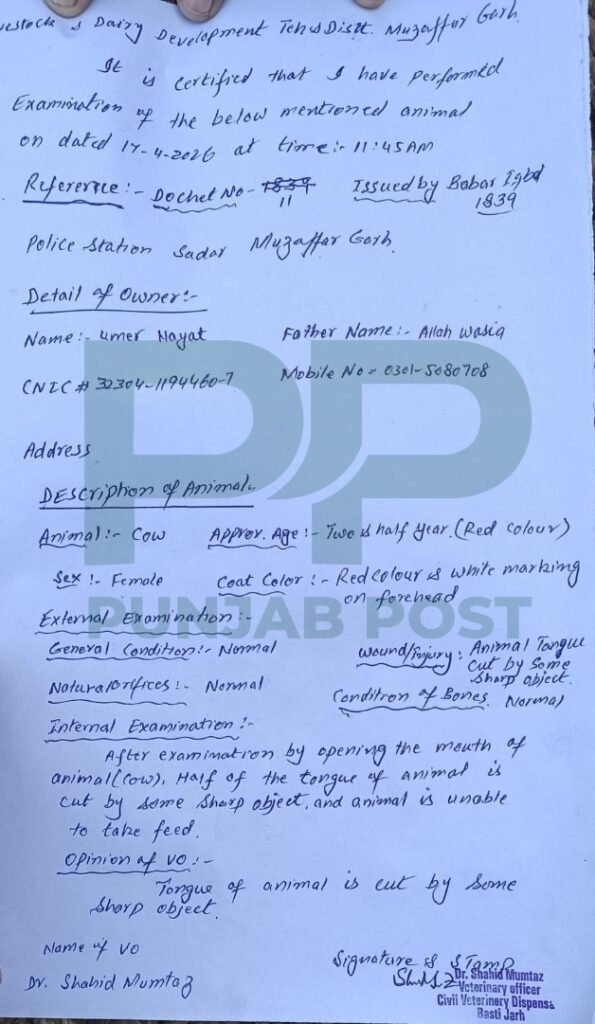 vestock & Dairy Development Teh & Distt. Muzaffar Garh.
It is certified that I have performed
Examination of the below mentioned animal
on dated 17-4-2026 at time:- 11:45AM
Reference:- Dochet No- 1839 Issued by Babar Iqbal
11 1839
Police Station Sadar Muzaffar Garh.
Detail of Owner:-
Name:- Umer Hayat Father Name:- Allah Wasia
CNIC # 32304-1194460-7 Mobile No- 0301-5080708
Address
Description of Animal.
Animal:- Cow Approx. Age:- Two & half year. (Red Colour)
Sex:- Female Coat Color:- Red colour & white marking
on forehead
PP
PUNJAB POST
External Examination:-
General Condition:- Normal Wound/Injury: Animal Tongue
cut by Some
Sharp object.
Natural Orifices:- Normal Condition of Bones. Normal
Internal Examination:-
After examination by opening the mouth of
animal (cow), Half of the tongue of animal is
cut by some sharp object, and animal is unable
to take feed.
Opinion of VO:-
Tongue of animal is cut by some
sharp object.
Name of VO Signature & Stamp
Dr. Shahid Mumtaz
Dr. Shahid Mumtaz
Veterinary officer
Civil Veterinery Dispensa
Basti Jarh